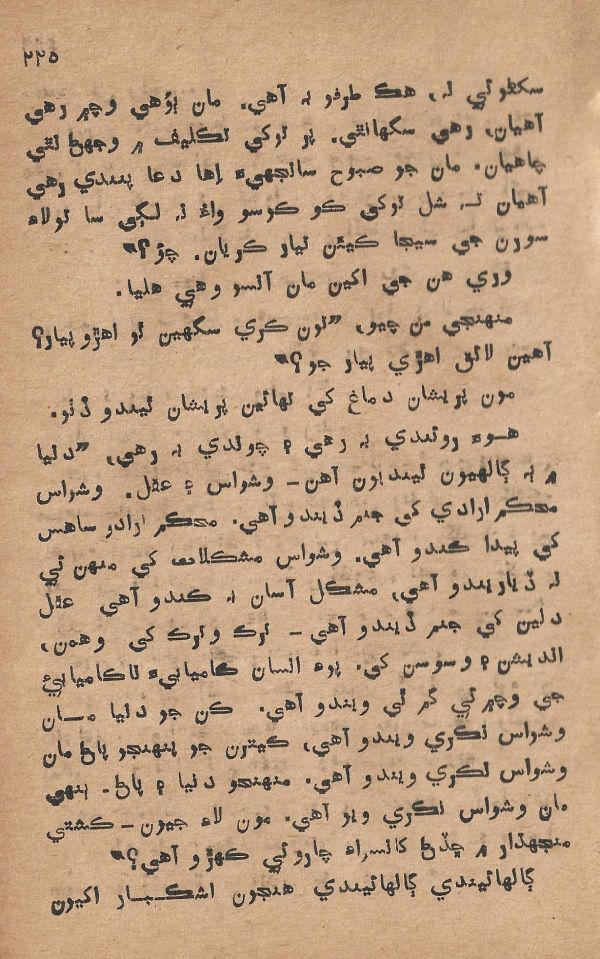 ۲۲۵
سکڻو ئي نہ، هڪ طرفو بہ آهي. مان ٻڙهي وچ ۾ رهي
آهيان، رهي سگهان ٿي. پر توکي تڪليف ۾ وجهڻ نٿي
چاهيان. مان جو صبوح سانجهيءَ اها دعا پنندي رهي
آهيان تہ شل توکي ڪو ڪوسو واءُ نہ لڳي سا تولاءِ
سورن جي سيجا ڪيئن تيار ڪريان. چؤ؟“
وري هن جي اکين مان آنسو وهي هليا.
منهنجي من چيو، ”تون ڪري سگهين ٿو اهڙو پيار؟
آهين لائق اهڙي پيار جو؟“
مون پريشان دماغ کي تهائين پريشان ٿيندو ڏٺو.
هوءَ روئندي بہ رهي ۽ چوندي بہ رهي، ”دنيا
۾ ٻہ ڳالهيون ٿينديون آهن - وشواس ۽ عقل. وشواس
محڪم ارادي کي جنم ڏيندو آهي. محڪم ارادو ساهس
کي پيدا ڪندو آهي. وشواس مشڪلات کي منهن ئي
نہ ڏياريندو آهي، مشڪل آسان بہ ڪندو آهي عقل
دلين کي جنم ڏيندو آهي - ترڪ وترڪ کي وهمن،
انديشن ۽ وسوسن کي. پوءِ انسان ڪاميابيءَ ناڪاميابيءَ
جي وچ ۾ ئي گم ٿي ويندو آهي. ڪن جو دنيا مان
وشواس نڪري ويندو آهي، ڪيترن جو پنهنجو پاڻ مان
وشواس نڪري ويندو آهي. منهنجو دنيا ۽ پاڻ. ٻنهي
مان وشواس نڪري ويو آهي. مون لاءِ جيون - ڪشتي
منجهڌار ۾ ڇڏڻ کانسواءِ چارو ئي ڪهڙو آهي؟“
ڳالهائيندي ڳالهائيندي هنجون اشڪبار اکيون